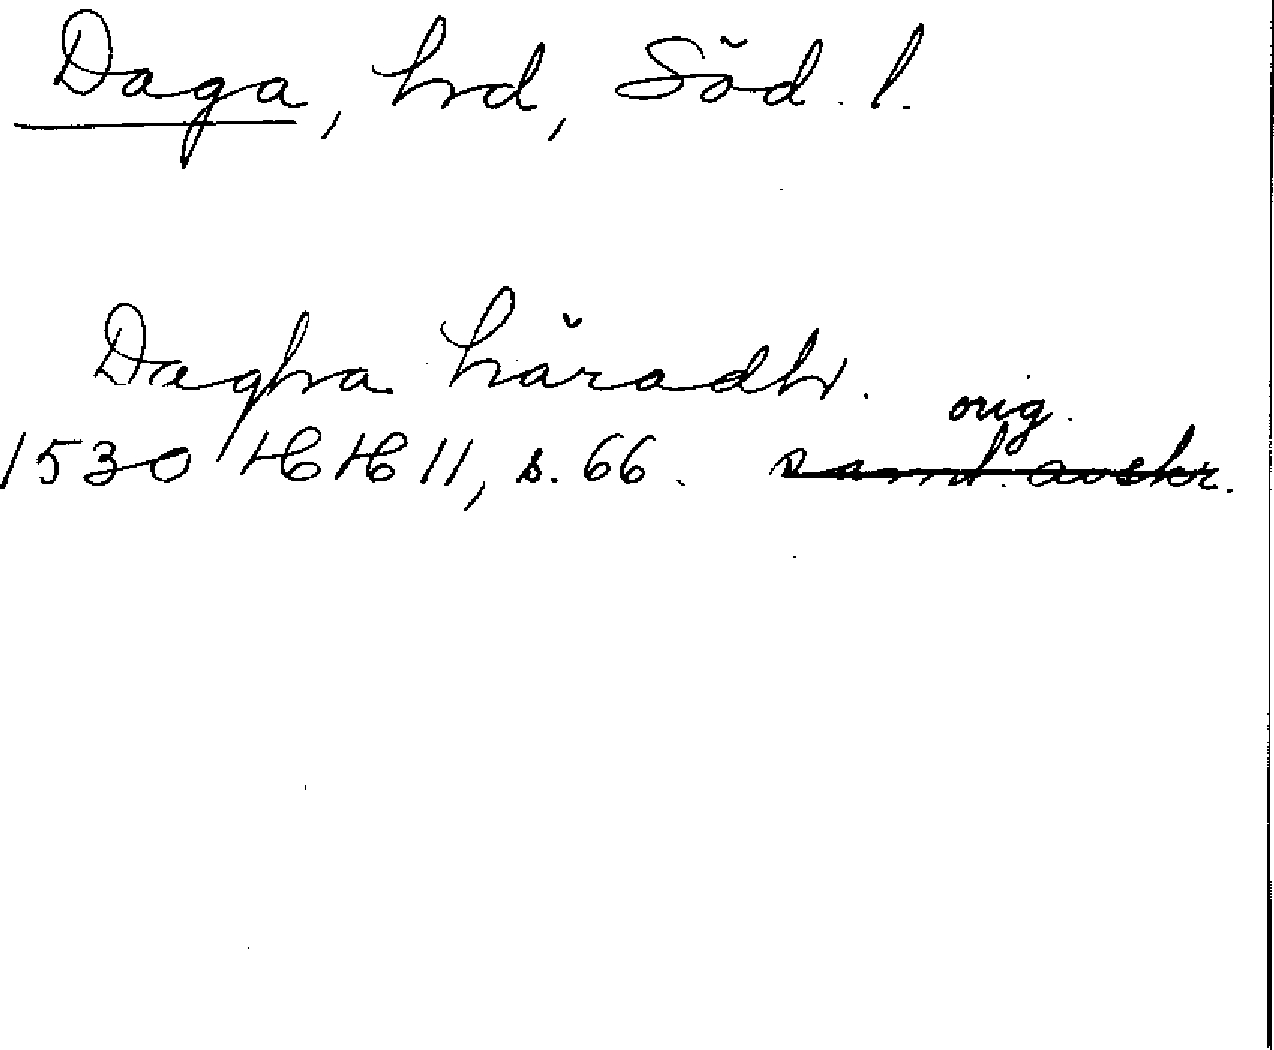 Daga, hrd, Söd. l.
Dagha häradh.
orig.
1530 HH 11, s. 66. samt. avskr.